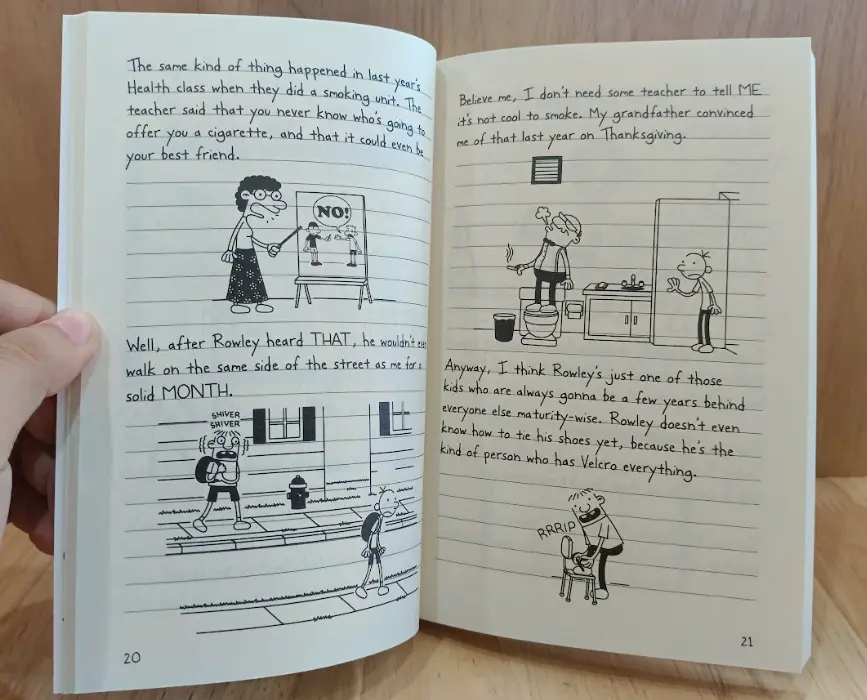 The same kind of thing happened in last year's
Health class when they did a smoking unit. The
teacher said that you never know who's going to
offer you a cigarette, and that it could even be
your best friend.
NO!
Well, after Rowley heard THAT, he wouldn't
walk on the same side of the street as me for a
solid MONTH.
SHIVER
SHIVER
20
Believe me, I don't need some teacher to tell ME
it's not cool to smoke. My grandfather convinced
me of that last year on Thanksgiving.
Anyway, I think Rowley's just one of those
kids who are always gonna be a few years behind
everyone else maturity-wise. Rowley doesn't even
know how to tie his shoes yet, because he's the
kind of person who has Velcro everything.
RRRIP
21